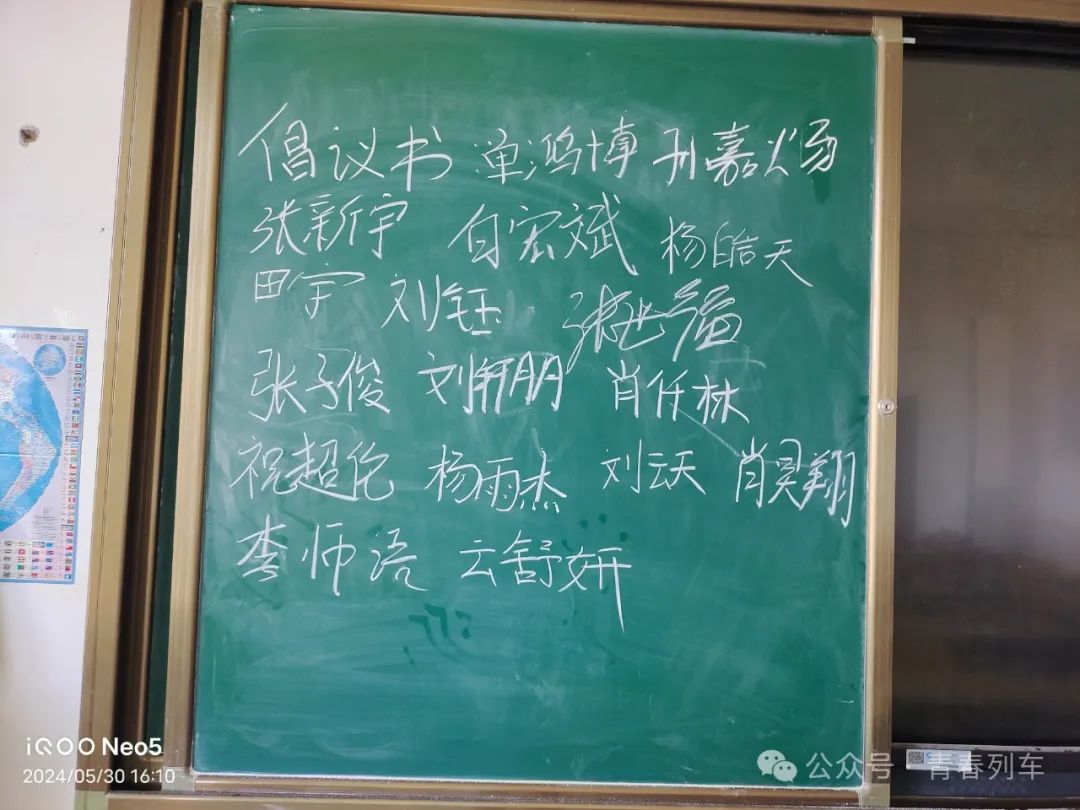 倡议书 单鸿博 孙嘉炀
张新宇 白宏斌 杨皓天
田宇 刘钰 张
张子俊 刘轩朋 肖任林
祝超伦 杨雨杰 刘云天 肖昊翔
李师语 云舒妍
iQOO Neo5
2024/05/30 16:10
公众号 青春列车